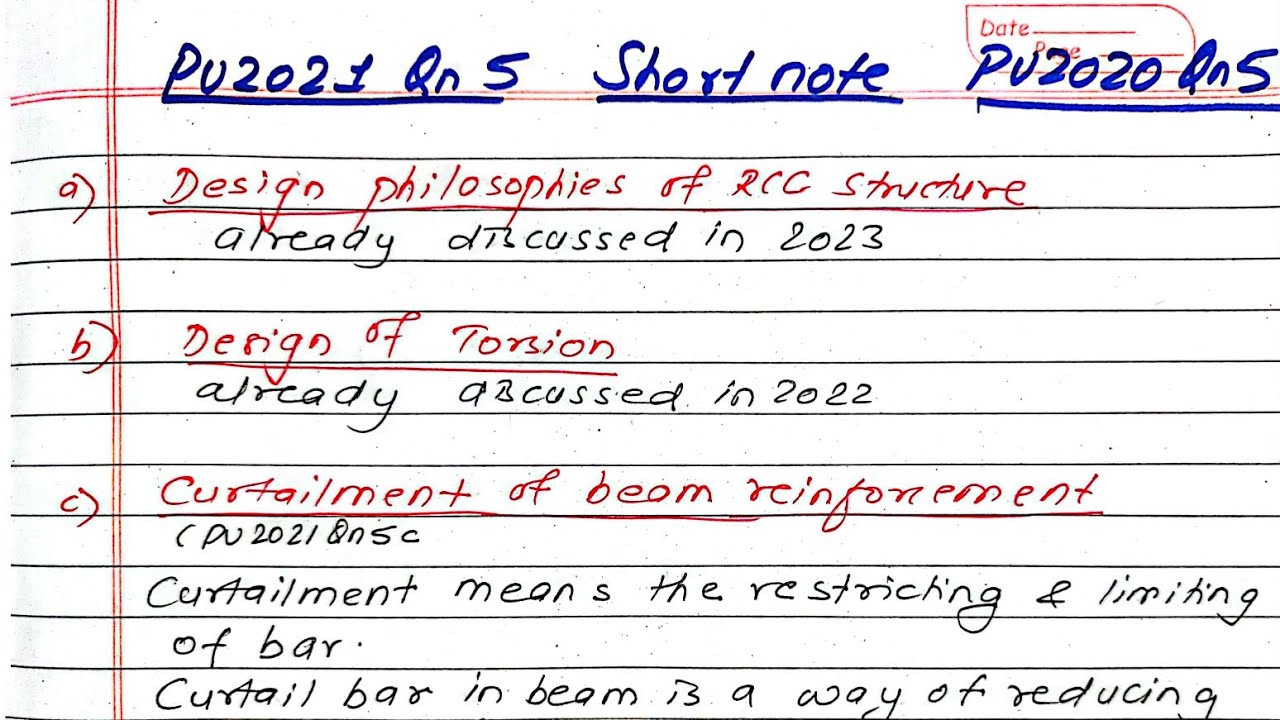 Date
Page
PU2021 Qn 5 Short note PU2020 Qn5
a) Design philosophies of RCC structure
already discussed in 2023
b) Design of Torsion
already discussed in 2022
c) Curtailment of beam reinforcement
( PU 2021 Qn 5 c
Curtailment means the restricting & limiting
of bar.
Curtail bar in beam is a way of reducing